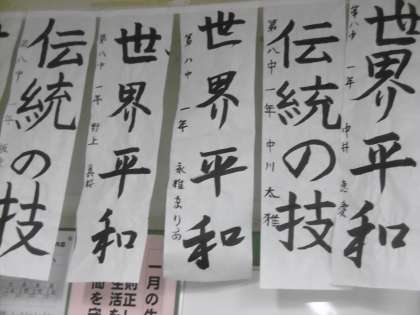 世界平和
第八中 一年 中井
伝統の技
第八中 一年 中川 太雅
世界平和
第八中 一年 永雅まりあ
世界平和
第八中 一年 野上 真桜
伝統の技
第八中 一年
一月の生
則正し
生活を
間を守